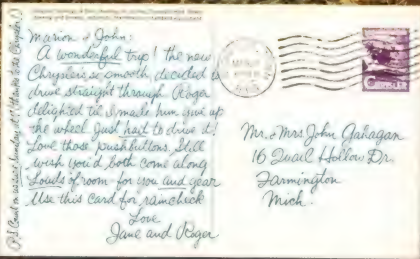 Marion & John:
A wonderful trip! the new
Chrysler's so smooth, decided to
drive straight through. Roger
delighted til I made him give up
the wheel. Just had to drive it!
Love those pushbuttons. Still
wish you'd both come along
Loads of room for you and gear
Use this card for raincheck
Love
Jane and Roger
Mr. & Mrs John Gahagan
16 Quail Hollow Dr.
Farmington
Mich.